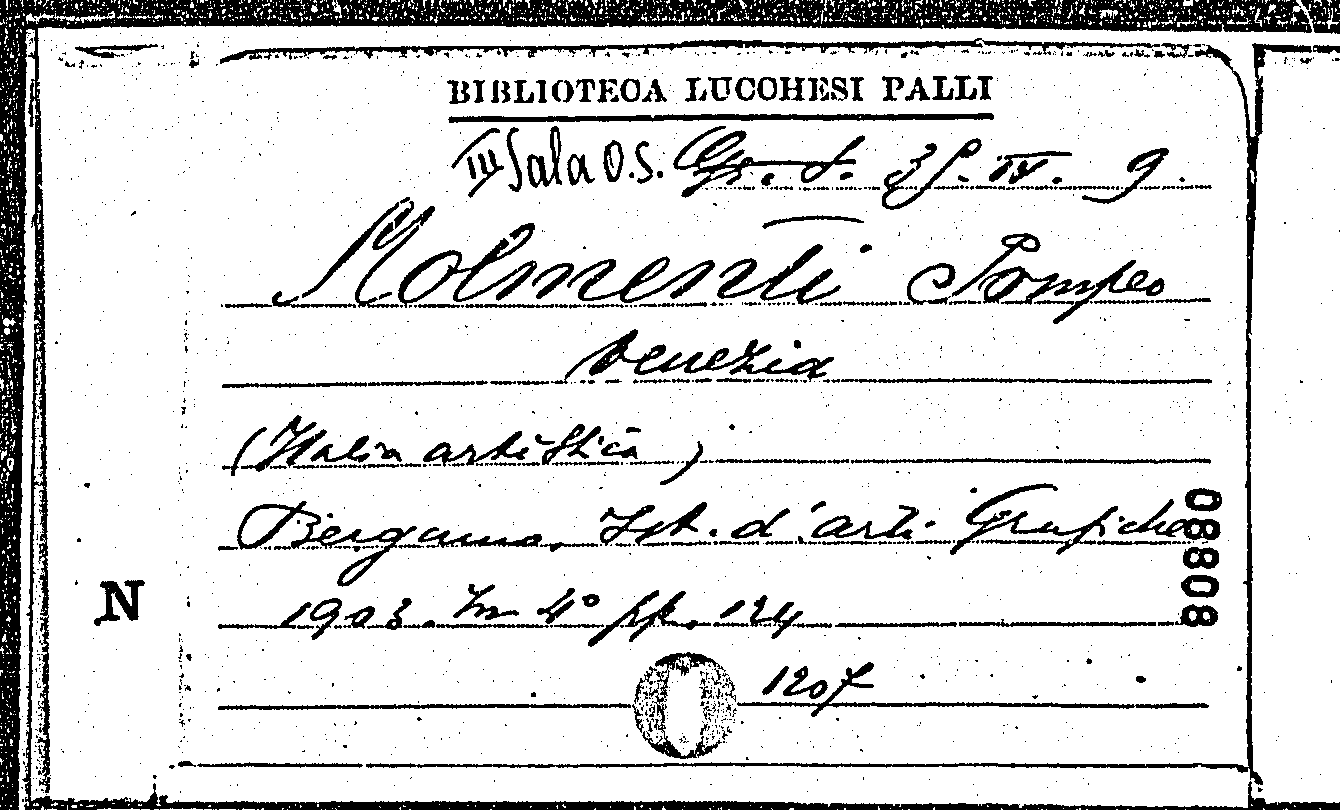 BIBLIOTECA LUCCHESI PALLI
III Sala O.S. Gr. S. 35. IV. 9.
Molmenti Pompeo
Venezia
(Italia artistica)
Bergamo. Ist. d'arti Grafiche
1903. In 4° pp. 124
1207
08808
N